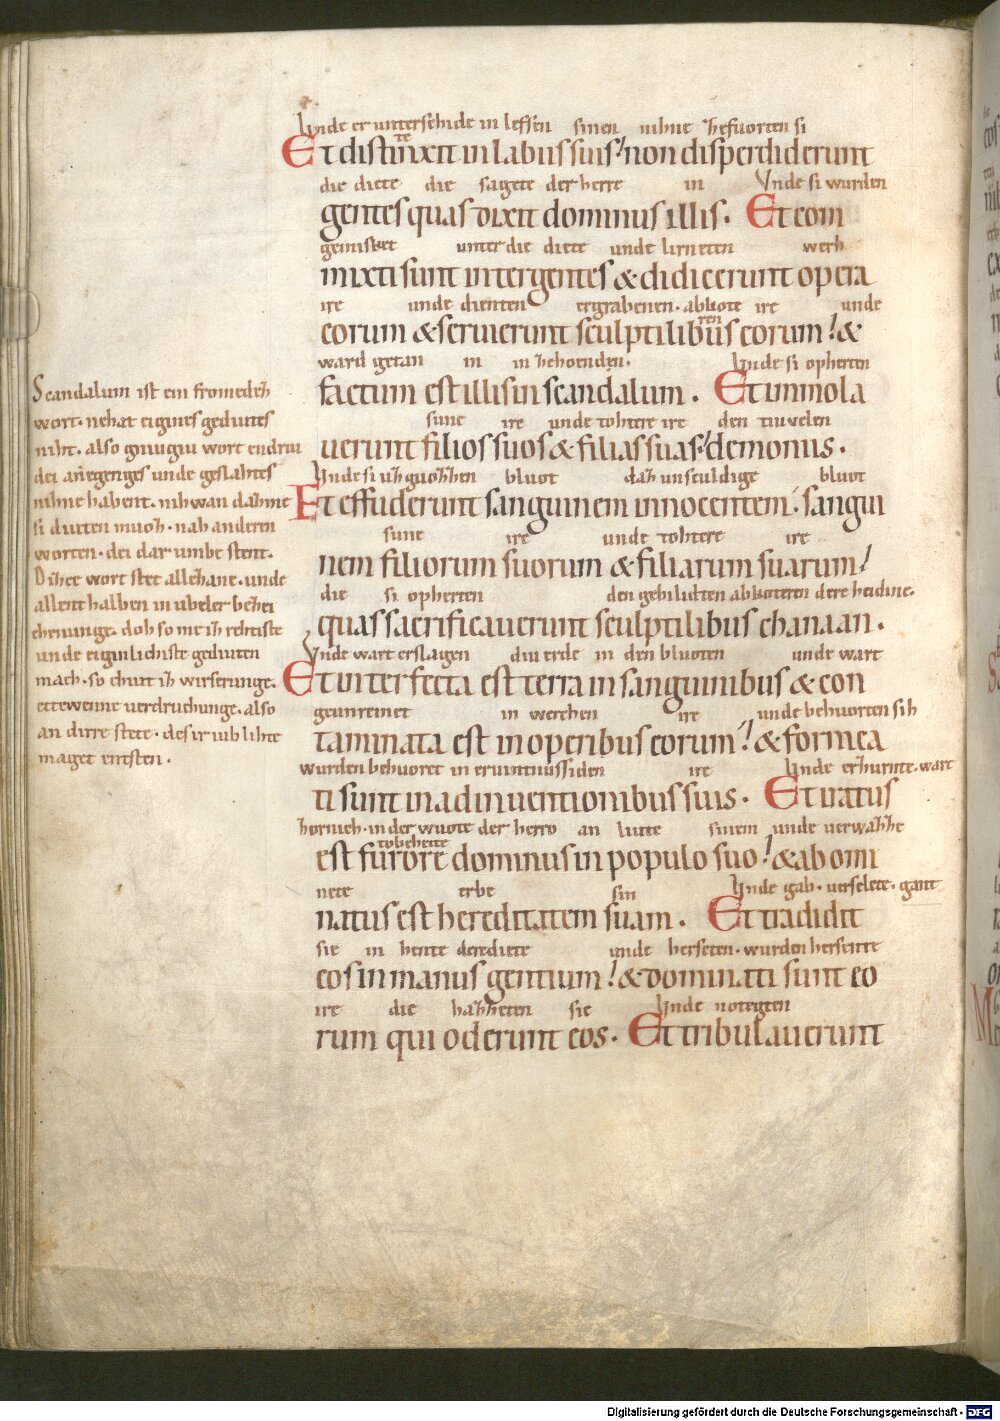 Unde er unterschide in leffsen sinen nihne
Et distinxit in labiis suis! non disperdiderunt
die diete die sagete der herre in Unde si wurden
gentes quas dixit dominus illis. Et com
gemisket unter die diete unde lirneten werh
mixti sunt inter gentes & didicerunt opera
ire unde dienten ergrabenen. abkote ire unde
ren
eorum & seruierunt sculptilibus eorum! &
ward getan in in Unde si opherten
factum est illis in scandalum. Et immola
sune ire unde tohtere ire den tiuvelen
uerunt filios suos & filias suas! demoniis.
Unde si bluot daz unsculdige bluot
Et effuderunt sanguinem innocentem. sangui
sune ire unde tohtere ire
nem filiorum suorum & filiarum suarum!
die si opherten den gebilidten abkoteren dere heidine.
quas sacrificauerunt sculptilibus chanaan.
Unde wart erslagen diu erde in den bluoten unde wart
Et interfecta est terra in sanguinibus & con
geunreinet in werchen ire unde behuorten sih
taminata est in operibus eorum! & fornica
wurden behuoret in ire Unde wart
ti sunt in adinuentionibus suis. Et iratus
in der wuote der herro an liute sinem unde
est furore dominus in populo suo! & abomi
nete erbe sin Unde gab. verselete. gant
natus est hereditatem suam. Et tradidit
sie in hente dere diete unde herseten. wurden
eos in manus gentium! & dominati sunt eo
ire die hazzeten sie Unde notegten
rum qui oderunt eos. Et tribulauerunt
Scandalum ist ein fromedez
wort. nehat eigines gediutes
niht. also gnuogiu wort
dei anegenges unde geslahtes
nihne habent. niwan
si diuten muoz. nah anderen
worten. dei dar umbe stent.
Dizze wort stet unde
allent halben in ubeler bezei
chenunge. doh so
unde eiginlichiste gediuten
mach. so chuit iz wirserunge.
ettewenne verdruchunge. also
an dirre stete. des ir iuh lihte
maget entsten.
Digitalisierung gefördert durch die Deutsche Forschungsgemeinschaft - DFG